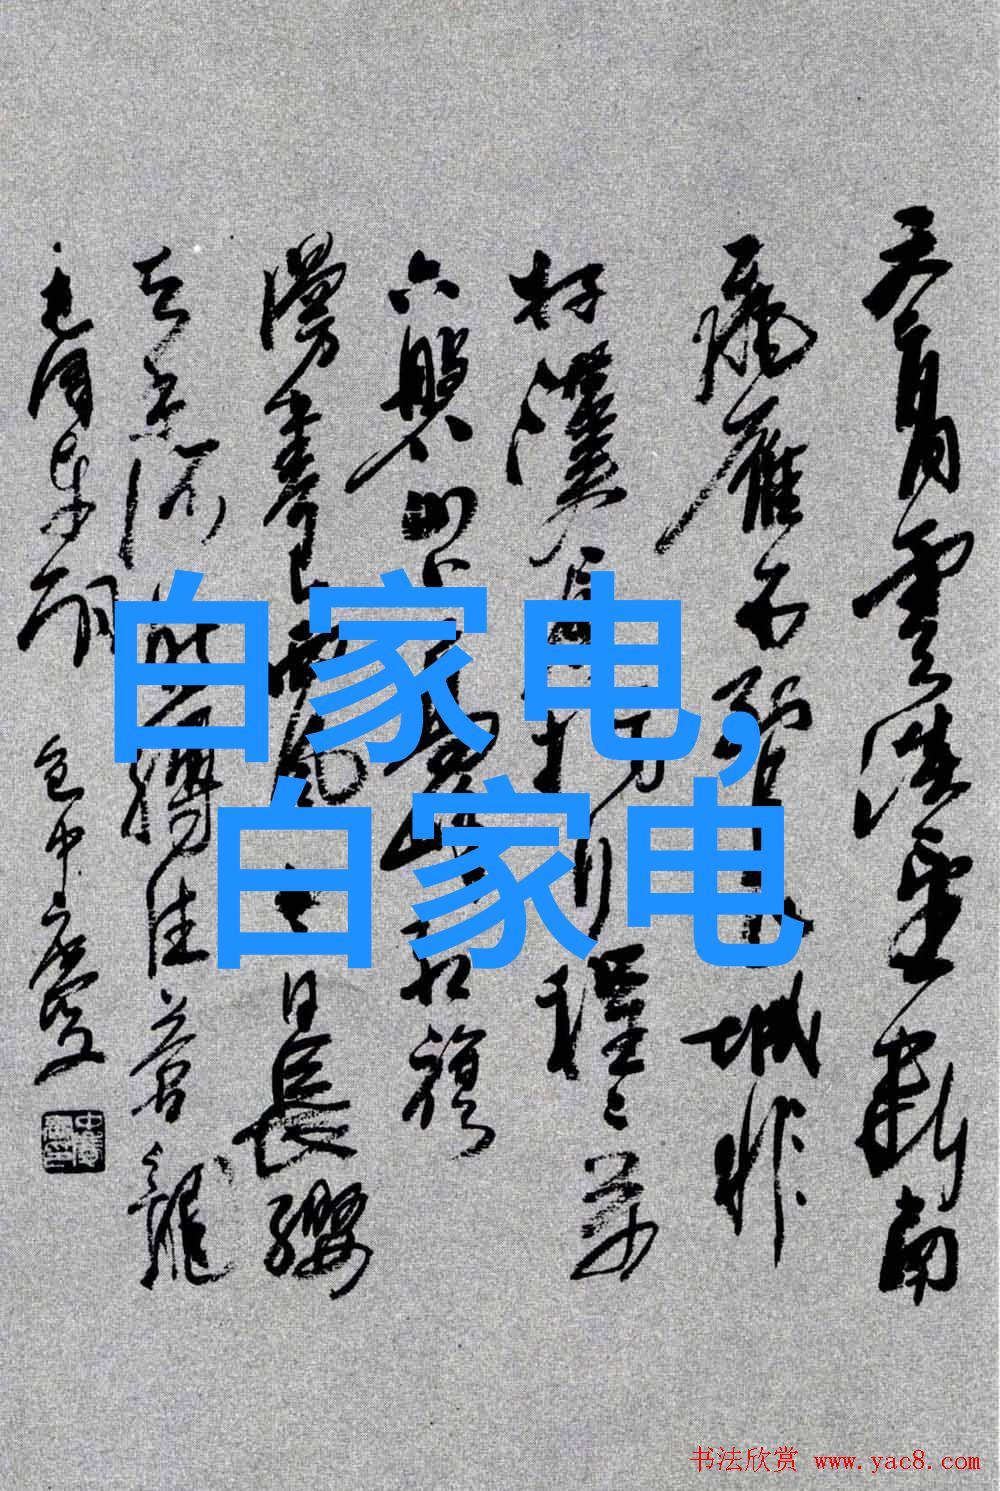 白家电,
白家电
天高雲淡望斷南
飛雁不到長城非
好漢屈指行程二万
六盤山上高峰紅旗
漫卷西風今日長纓
在手何時縛住蒼龍
毛澤东词
书法欣赏 www.yac8.com